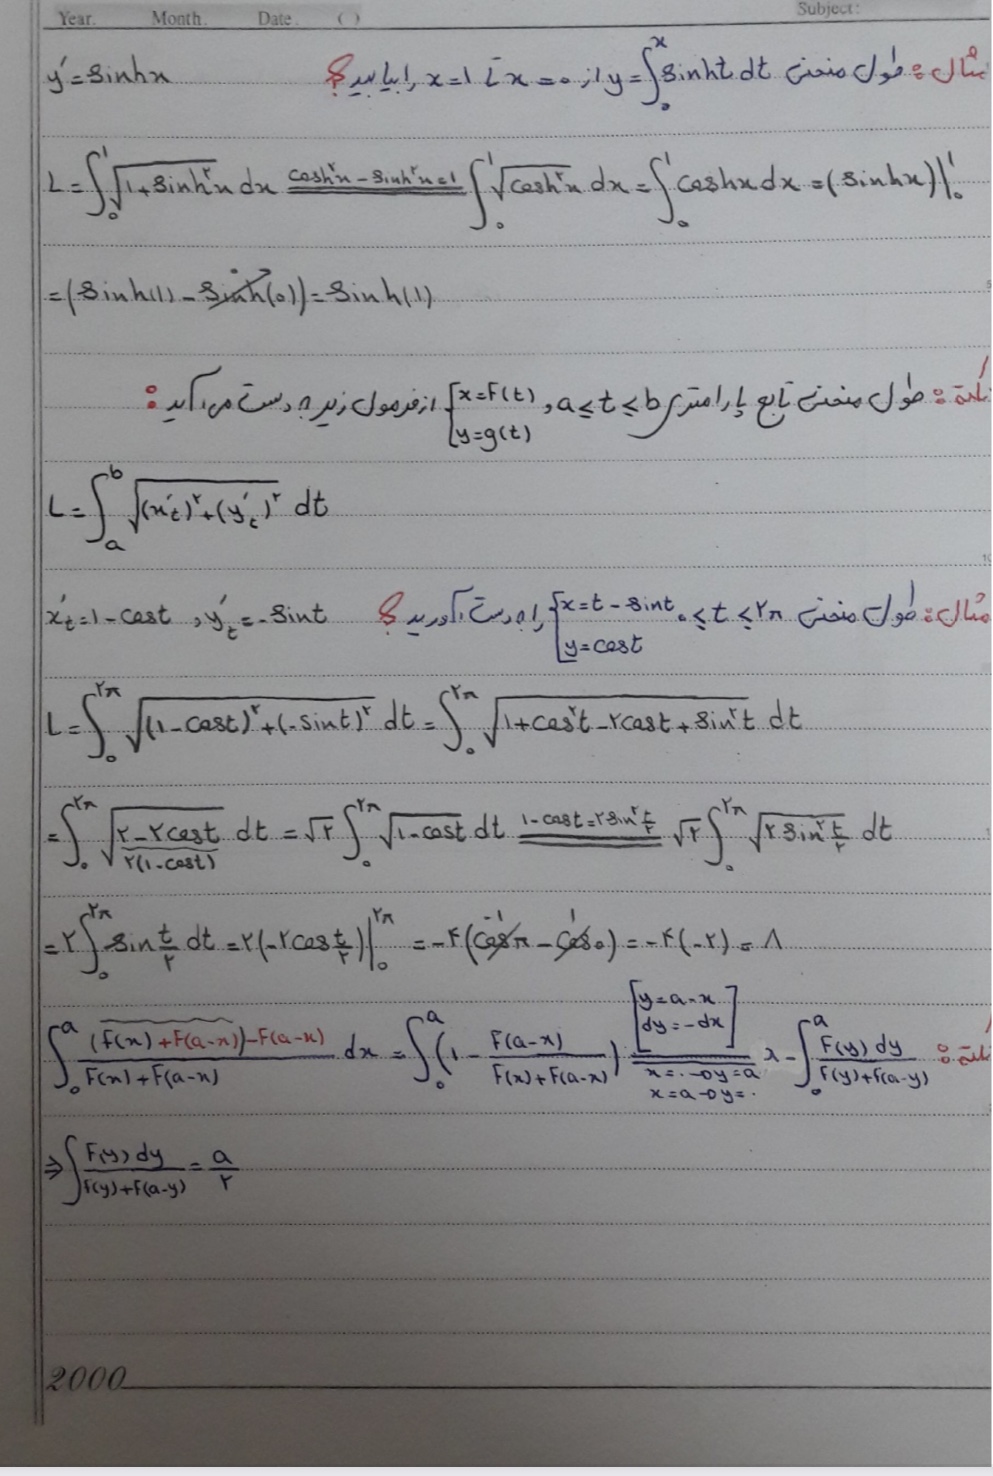 Year. Month. Date. ( ) Subject:
مثال: طول منحنی y=∫₀ˣ sinht dt از x=0 تا x=1 را بیابید؟ y′=sinhx
L=∫₀¹ √(1+sinh²x) dx =(cosh²x-sinh²x=1)= ∫₀¹ √(cosh²x) dx = ∫₀¹ coshx dx = (sinhx)|₀¹
=(sinh(1)-sinh(0))=sinh(1)
نکته: طول منحنی تابع پارامتری a≤t≤b و {x=f(t) y=g(t) از فرمول زیر بدست می‌آید:
L=∫ₐᵇ √((x′t)^۲+(y′t)^۲) dt
مثال: طول منحنی ۰≤t≤۲π {x=t-sint y=cost را بدست آورید؟ x′t=1-cost , y′t=-sint
L=∫₀^۲π √((1-cost)^۲+(-sint)^۲) dt = ∫₀^۲π √(1+cos^۲t-۲cost+sin^۲t) dt
=∫₀^۲π √(۲-۲cost) dt = √۲ ∫₀^۲π √(1-cost) dt =(1-cost=۲sin^۲ t/۲)= √۲ ∫₀^۲π √(۲sin^۲ t/۲) dt
۲(1-cost)
=۲∫₀^۲π sin t/۲ dt = ۲(-۲cos t/۲)|₀^۲π = -۴(cosπ - cos0) = -۴(-۲) = ۸
نکته: ∫₀ᵃ ((f(x)+f(a-x))-f(a-x))/(f(x)+f(a-x)) dx = ∫₀ᵃ (1 - f(a-x)/(f(x)+f(a-x))) =[y=a-x dy=-dx]= x - ∫₀ᵃ f(y)dy/(f(y)+f(a-y))
x=۰→y=a
x=a→y=۰
⇒ ∫ f(y)dy/(f(y)+f(a-y)) = a/۲
2000